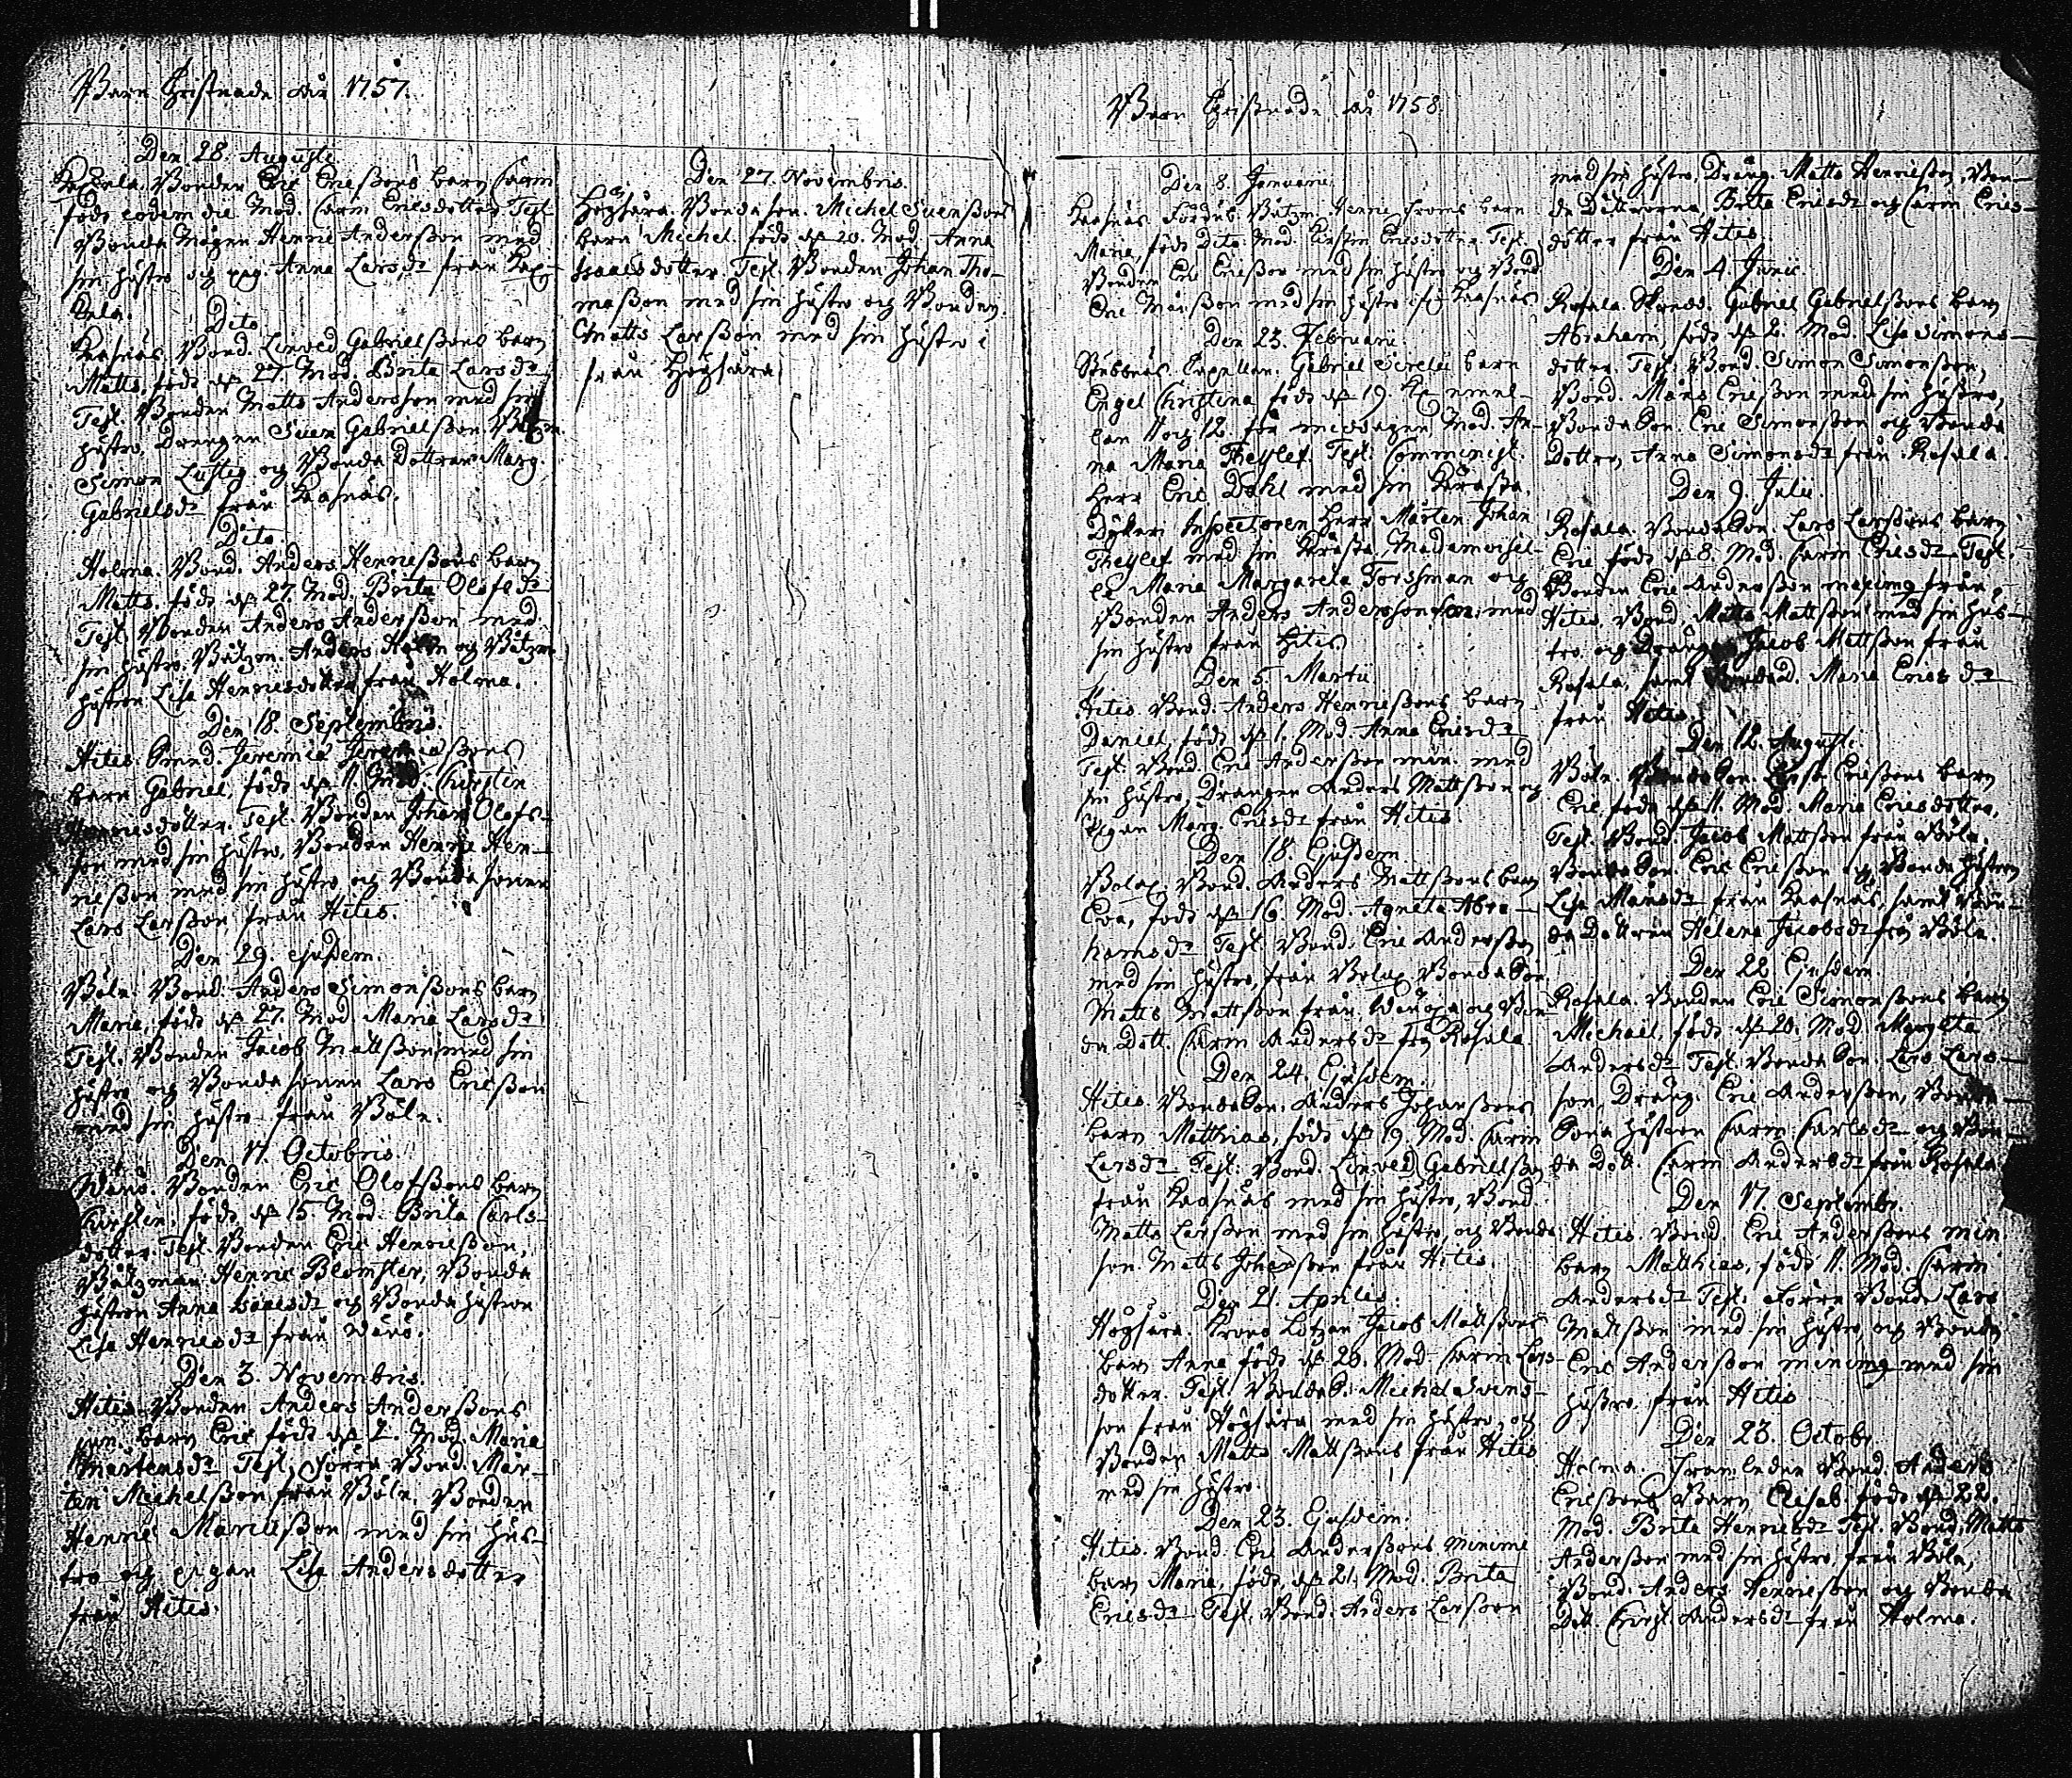 Barn Christnade åhr 1757.
Den 28. Augusti
Bonden Eric Ericßons barn Carin
född eodem die. Mod. Carin Ericsdotter Test.
Bonda Mågen Henric Anderßon med
sin hustro och pig. Anna Larsd:r från
Dito
Kasnäs. Bond. Linved Gabrielßons barn
Matts, född d. 27. Mod. Brita Larsd:r
Test. Bonden Matts Andersson med sin
hustro, Drengen Suen Gabrielßon.
Simon Lustig och Bonda Dottren Marg.
Gabrielsd:r från Kasnäs.
Dito.
Holma. Bond. Anders Henricßons barn
Matts. född d. 27. Mod. Brita Olofsd:r
Test. Bonden Anders Anderßon med
sin hustro. Båtzm. Anders Holm och Båtzm.
hustron Lisa Henricsdotter från Holma.
Den 18. Septembris.
Hitis. Jeremia Jeremiaßons
barn Gabriel, född d. 11. Mod. Chirstin
Henricsdotter. Test. Bonden Johan Olofs-
son med sin hustro, Bonden Henric Hen-
ricßon med sin hustro och Bonda sonen
Lars Larßon från Hitis.
Den 29. ejusdem.
Böle. Bond. Anders Simonßons barn
Maria, född d. 27. Mod. Maria Larsd:r
Test. Bonden Jacob Mattßon med sin
hustro och Bonda sonen Lars Ericßon
med sin hustro från Böle.
Den 17. Octobris
Wänö. Bonden Eric Olofßons barn
Chirstin. född d. 15. Mod. Brita Carls-
dotter. Test. Bonden Eric Henricßon,
Båtzman Henric Blomster, Bonda
hustron Anna Isaacsd:r och Bonda hustron
Lisa Henricsd:r från Wänö.
Den 3. Novembris.
Hitis. Bonden Anders Anderßons
jun. barn Eric född d. 2. Mod. Maria
Mårtensd:r Test. förra Bond. Mår-
ten Michelßon från Böle. Bonden
Henric Mårtenßon med sin hus-
tro och pigan Lisa Andersdotter
från Hitis.
Den 27. Novembris.
Högsåra. Bonda son. Michel Suenßons
barn Michel. född d. 20. Mod. Anna
Isaacsdotter. Test. Bonden Johan Tho-
maßon med sin hustro och Bonden
Matts Larßon med sin hustro
från Högsåra.
Barn Christnade år 1758.
Den 8. Januarii
Kasnäs. Båtzm. Henric Froms barn
Maria, född Dito. Mod. Kirstin Ericsdotter. Test.
Bonden Eric Ericßon med sin hustro och Bond
Eric Månßon med sin hustro Kasnäs
Den 23. Februarii.
Stubbnäs. Capellan. Gabriel Sirelii barn
Engel Christina född d. 19. Kl. emel-
lan 11 och 12. för middagen. Mod. An-
na Maria Theslef. Test. Comminist.
Herr Eric Dahl med sin Kärasta,
Inspectoren Herr Mårten Johan
Theslef med sin Kärasta, Mademoisel-
le Maria Margareta Forssman och
Bonden Anders Andersson med
sin hustro från Hitis.
Den 5. Martii
Hitis. Bond. Anders Henricßons barn
Daniel, född d. 1. Mod. Anna Ericsd:r
Test. Bond. Eric Anderßon min. med
sin hustro, Drangen Anders Mattßon och
Pigan Marg. Ericsd:r från Hitis.
Den 18. Ejusdem.
Bolax. Bond. Anders Mattßons barn
Eva, född d. 16. Mod. Agneta Abra-
hamsd:r Test. Bond. Eric Anderßon
med sin hustro, från Bolax. Bonda Son
Matts Mattßon från Wänoxa och Bon-
da Dott. Carin Andersd:r från Rosala.
Den 24. Ejusdem.
Hitis. Bonda Son. Anders Johanßons
barn Matthias, född d. 19. Mod. Carin
Larsd:r Test. Bond. Linved Gabrielßon
från Kasnäs med sin hustro, Bond.
Matts Larßon med sin hustro, och Bonda
son. Matts Johanßon från Hitis.
Den 21. Aprilis.
Högsåra. Krono Lotzen Jacob Mattßons
barn Anna född d. 20. Mod. Carin Lars-
dotter. Test. Bonda S. Michel Svens-
son från Högsåra med sin hustro, och
Bonden Matts Mattßons från Hitis
med sin hustro.
Den 23. Ejusdem.
Hitis. Bond. Eric Anderßons minimi
barn Maria, född d. 21. Mod. Brita
Ericsd:r Test. Bond. Anders Larßon
med sin hustro, Dräng. Matts Henricßon, Bon-
da Döttrarna, Brita Ericsd:r och Carin Erics-
dotter från Hitis.
Den 4. Junii
Rosala. Gabriel Gabrielßons barn
Abraham, född d. 2. Mod. Lisa Simons-
dotter. Test. Bond. Simon Simonßon,
Bond. Måns Ericßon med sin hustro,
Bonda Son. Eric Simonßon och Bonda
Dottro, Anna Simonsd:r från Rosala.
Den 9. Julii.
Rosala. Bonda Son. Lars Larßons barn
Eric född d. 8. Mod. Carin Ericsd:r Test.
Bonden Eric Anderßon maximg från
Hitis. Bond. Matts Mattßon med sin hus-
tro och Drängen Jacob Mattßon från
Rosala, samt Bonda D. Maria Ericsd:r
från Hitis.
Den 12. Augusti
Böle. Bonda Son. Ericßons barn
Eric, född d. 11. Mod. Maria Ericsdotter,
Test. Bond. Jacob Mattßon från Böle,
Bonda Son. Eric Ericßon och Bonda hustron
Lisa Månsd:r från Kasnäs, samt Bon-
da Dottren Helena Jacobsd:r från Böle.
Den 22. Ejusdem.
Rosala. Bonden Eric Simonßons barn
Michail, född d. 20. Mod. Margeta
Andersd:r Test. Bonda Son. Lars Lars-
son, Dräng. Eric Anderßon, Bonda
Sona hustron Carin Carlsd:r och Bon-
da Dott. Carin Andersd:r från Rosala.
Den 17. Septembr.
Hitis. Bond. Eric Anderßons min.
barn Matthias, född 11. Mod. Carin
Andersd:r Test. Förra Bonde Lars
Mattßon med sin hustro och Bonden
Eric Anderßon minimg med sin
hustro från Hitis
Den 23. Octobr.
Holma. Framledne Bond. Anders
Ericßons Barn Elisab. född d. 22.
Mod. Brita Henricsd:r Test. Bond. Matts
Anderßon med sin hustro från Böle,
Bond. Anders Henricßon och Bonda
Dott. Chirst. Andersd:r från Holma.